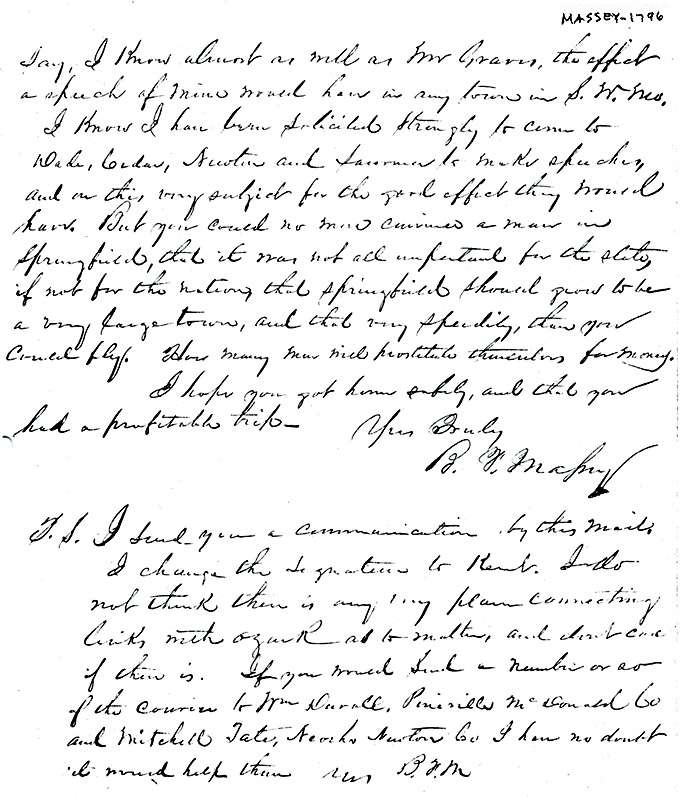 MASSEY-1796
say, I know almost as well as Mr Graves, the effect
a speech of mine would have in any town in S. W. Mo.
I know I have been solicited strongly to come to
Dade, Cedar, Newton and to make speeches,
and on this very subject for the good effect they would
have. But you could no more convince a man in
Springfield, that it was not all important for the state,
if not for the nation, that Springfield should grow to be
a very large town, and that very speedily, than you
could fly. How many men will prostitute themselves for money.
I hope you got home safely, and that you
had a profitable trip—
Yrs Truly
B. F. Massey
P.S. I send you a communication by this mail.
I change the signature to Kent. I do
not think there is any plain connecting
links with Ozark as to matter, and don't care
if there is. If you would send a number or so
of the courier to Wm Duvall, Pineville McDonald Co
and Mitchell Tate, Neosho Newton Co I have no doubt
it would help them Yrs B.F.M